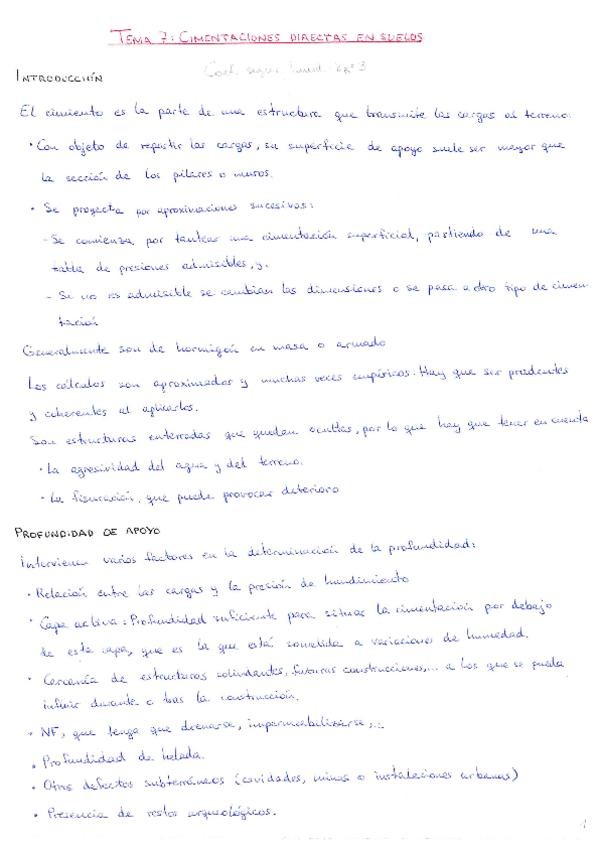 TEMA 7: CIMENTACIONES DIRECTAS EN SUELOS
INTRODUCCIÓN
Coef. segur. hund. 3
El cimiento es la parte de una estructura que transmite las cargas al terreno.
• Con objeto de repartir las cargas, su superficie de apoyo suele ser mayor que
la sección de los pilares o muros.
• Se proyecta por aproximaciones sucesivas:
- Se comienza por tantear una cimentación superficial, partiendo de una
tabla de presiones admisibles, y.
- Si no es admisible se cambian las dimensiones o se pasa a otro tipo de cimen-
tación
Generalmente son de hormigón en masa o armado
Los cálculos son aproximados y muchas veces empíricos. Hay que ser prudentes
y coherentes al aplicarlos.
Son estructuras enterradas que quedan ocultas, por lo que hay que tener en cuenta
• La agresividad del agua y del terreno.
• La fisuración, que puede provocar deterioro
PROFUNDIDAD DE APOYO
Intervienen varios factores en la determinación de la profundidad:
• Relación entre las cargas y la presión de hundimiento
• Capa activa: Profundidad suficiente para situar la cimentación por debajo
de esta capa, que es la que está sometida a variaciones de humedad.
• Cercanía de estructuras colindantes, futuras construcciones,... a las que se pueda
influir durante o tras la construcción.
• NF, que tenga que drenarse, impermeabilizarse,...
• Profundidad de helada.
• Otros defectos subterráneos (cavidades, minas o instalaciones urbanas)
• Presencia de restos arqueológicos.
1